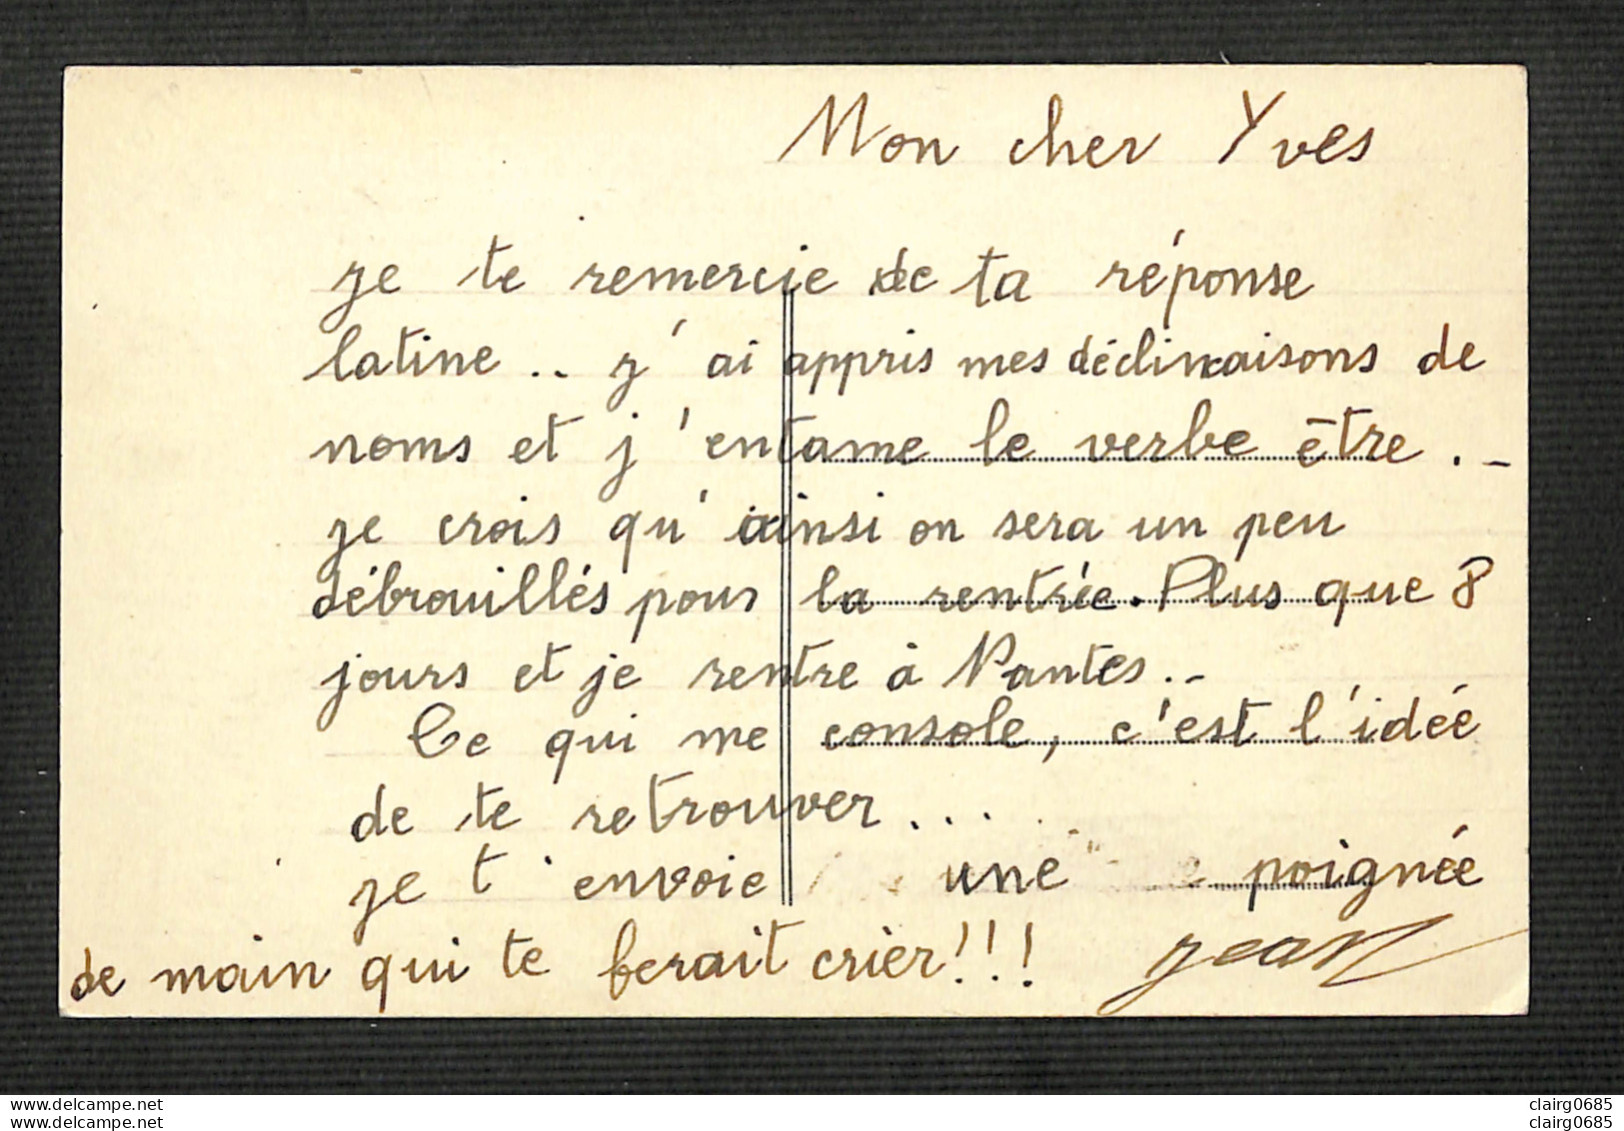 Mon cher Yves
je te remercie de ta réponse
latine .. j'ai appris mes déclinaisons de
noms et j'entame le verbe être . -
je crois qu'ainsi on sera un peu
débrouillés pour la rentrée. Plus que 8
jours et je rentre à Nantes ..
Ce qui me console, c'est l'idée
de te retrouver ....
je t'envoie une poignée
de main qui te ferait crier!!!
Jean
www.delcampe.net
www.delcampe.net
clairg0685
clairg0685